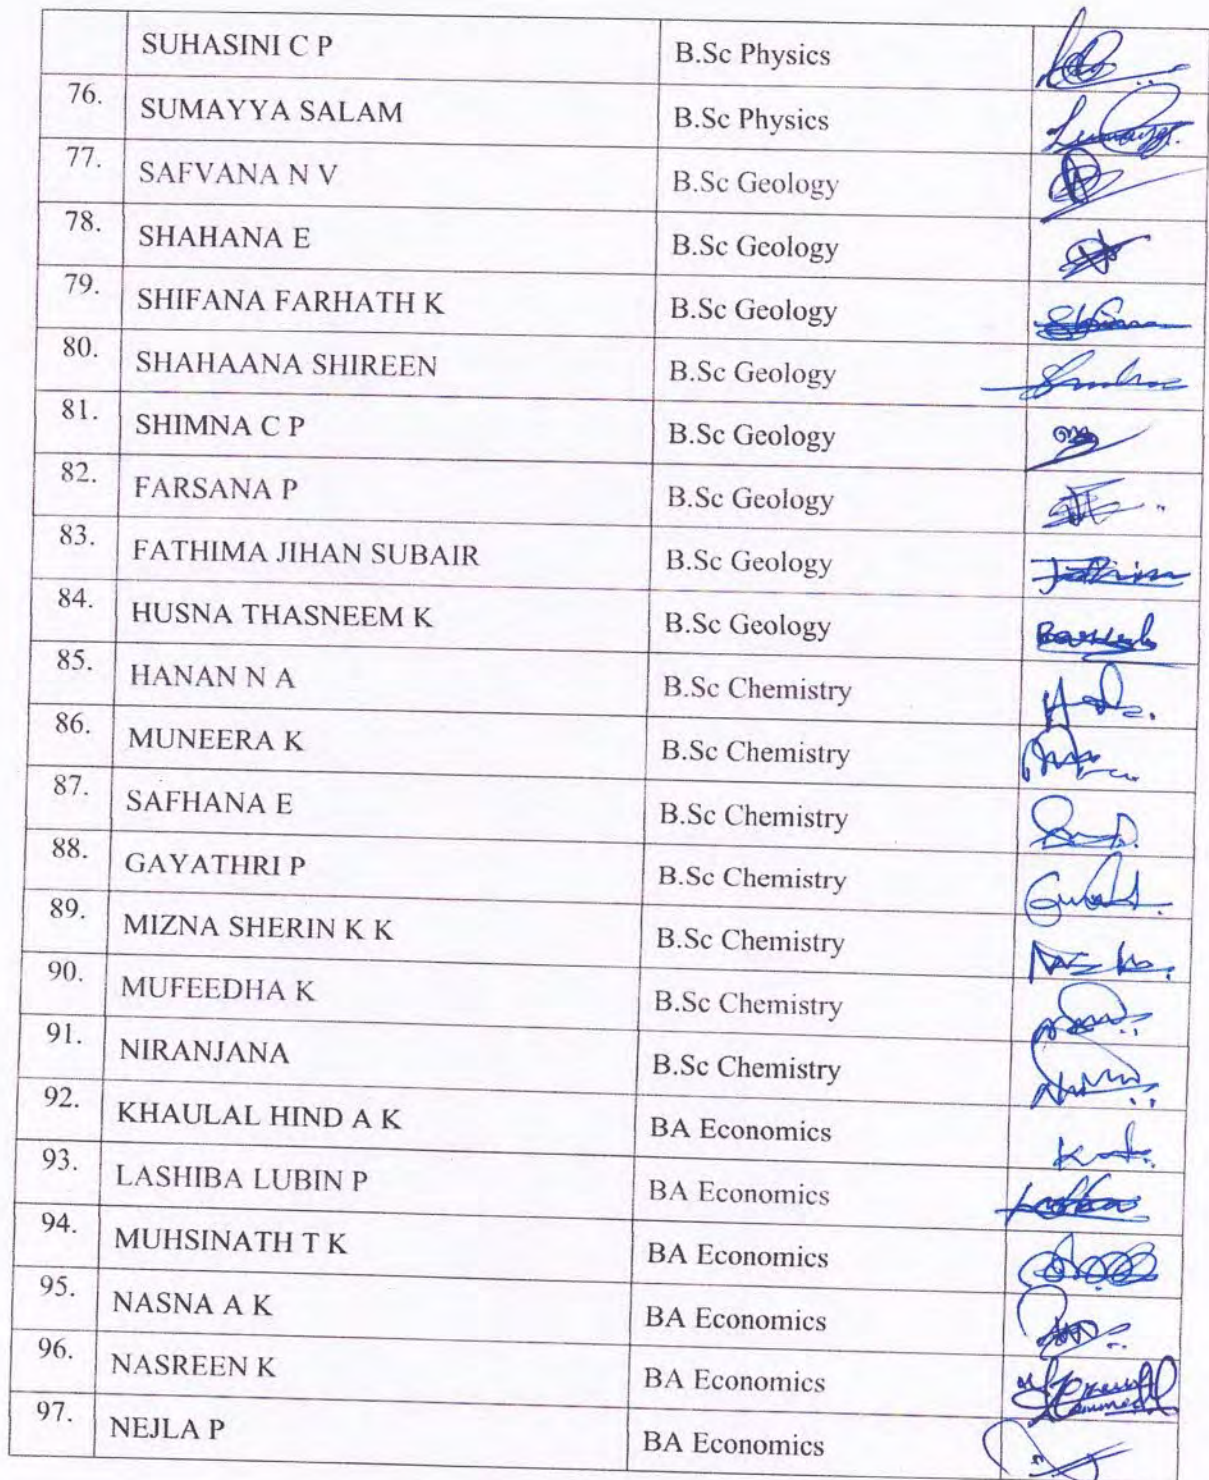 SUHASINI C P B.Sc Physics
76. SUMAYYA SALAM B.Sc Physics
77. SAFVANA N V B.Sc Geology
78. SHAHANA E B.Sc Geology
79. SHIFANA FARHATH K B.Sc Geology
80. SHAHAANA SHIREEN B.Sc Geology
81. SHIMNA C P B.Sc Geology
82. FARSANA P B.Sc Geology
83. FATHIMA JIHAN SUBAIR B.Sc Geology
84. HUSNA THASNEEM K B.Sc Geology
85. HANAN N A B.Sc Chemistry
86. MUNEERA K B.Sc Chemistry
87. SAFHANA E B.Sc Chemistry
88. GAYATHRI P B.Sc Chemistry
89. MIZNA SHERIN K K B.Sc Chemistry
90. MUFEEDHA K B.Sc Chemistry
91. NIRANJANA B.Sc Chemistry
92. KHAULAL HIND A K BA Economics
93. LASHIBA LUBIN P BA Economics
94. MUHSINATH T K BA Economics
95. NASNA A K BA Economics
96. NASREEN K BA Economics
97. NEJLA P BA Economics